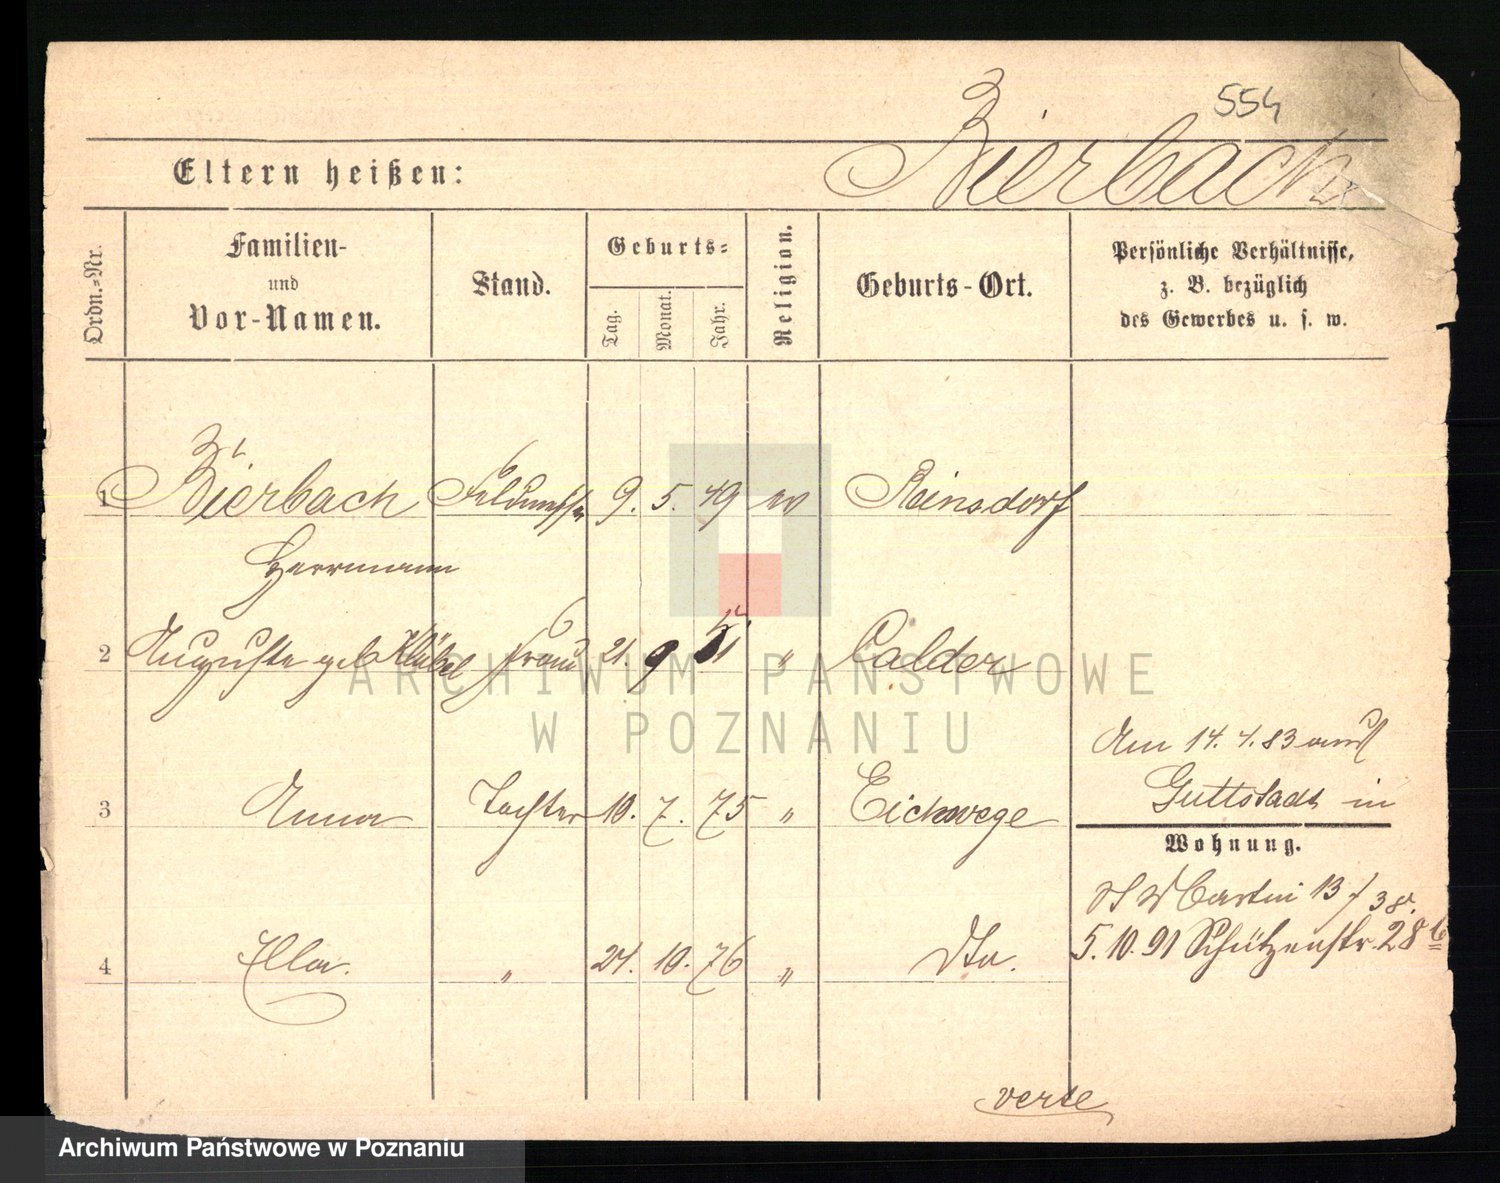 554
Eltern heißen: Bierbach
Ordn.-Nr.
Familien-
und
Vor-Namen.
Stand.
Geburts-
Tag.
Monat.
Jahr.
Religion.
Geburts-Ort.
Persönliche Verhältnisse,
z. B. bezüglich
des Gewerbes u. s. w.
1 Bierbach Feldmesser 9. 5. 49 ev Reinsdorf
Herrmann
2 Auguste geb Frau 21. 9 51 " Calden
Am 14. 4. 83 aus
Guttstadt in
3 Anna Tochter 10. 7. 75 " Eichwege
Wohnung.
St Martin 13
5. 10. 91 Schützenstr. 28b
4 Ella. " 24. 10. 76 " Dto.
verte
ARCHIWUM PAŃSTWOWE
W POZNANIU
Archiwum Państwowe w Poznaniu